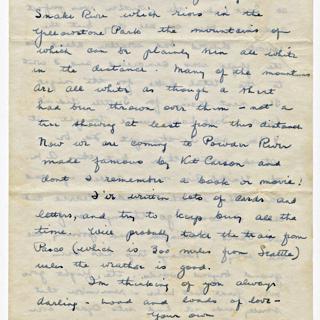 Snake River which rises in the
Yellowstone Park the mountains of
which can be plainly seen all white
in the distance. Many of the mountains
are all white as though a sheet
had been thrown over them - not a
tree showing at least from this distance
Now we are coming to Powder River
made famous by Kit Carson and
dont I remember a book or movie!
I've written lots of cards and
letters, and try to keep busy all the
time. Will probably take the train from
Pasco (which is 300 miles from Seattle)
unless the weather is good.
I'm thinking of you always
darling - load and loads of love -
Your own